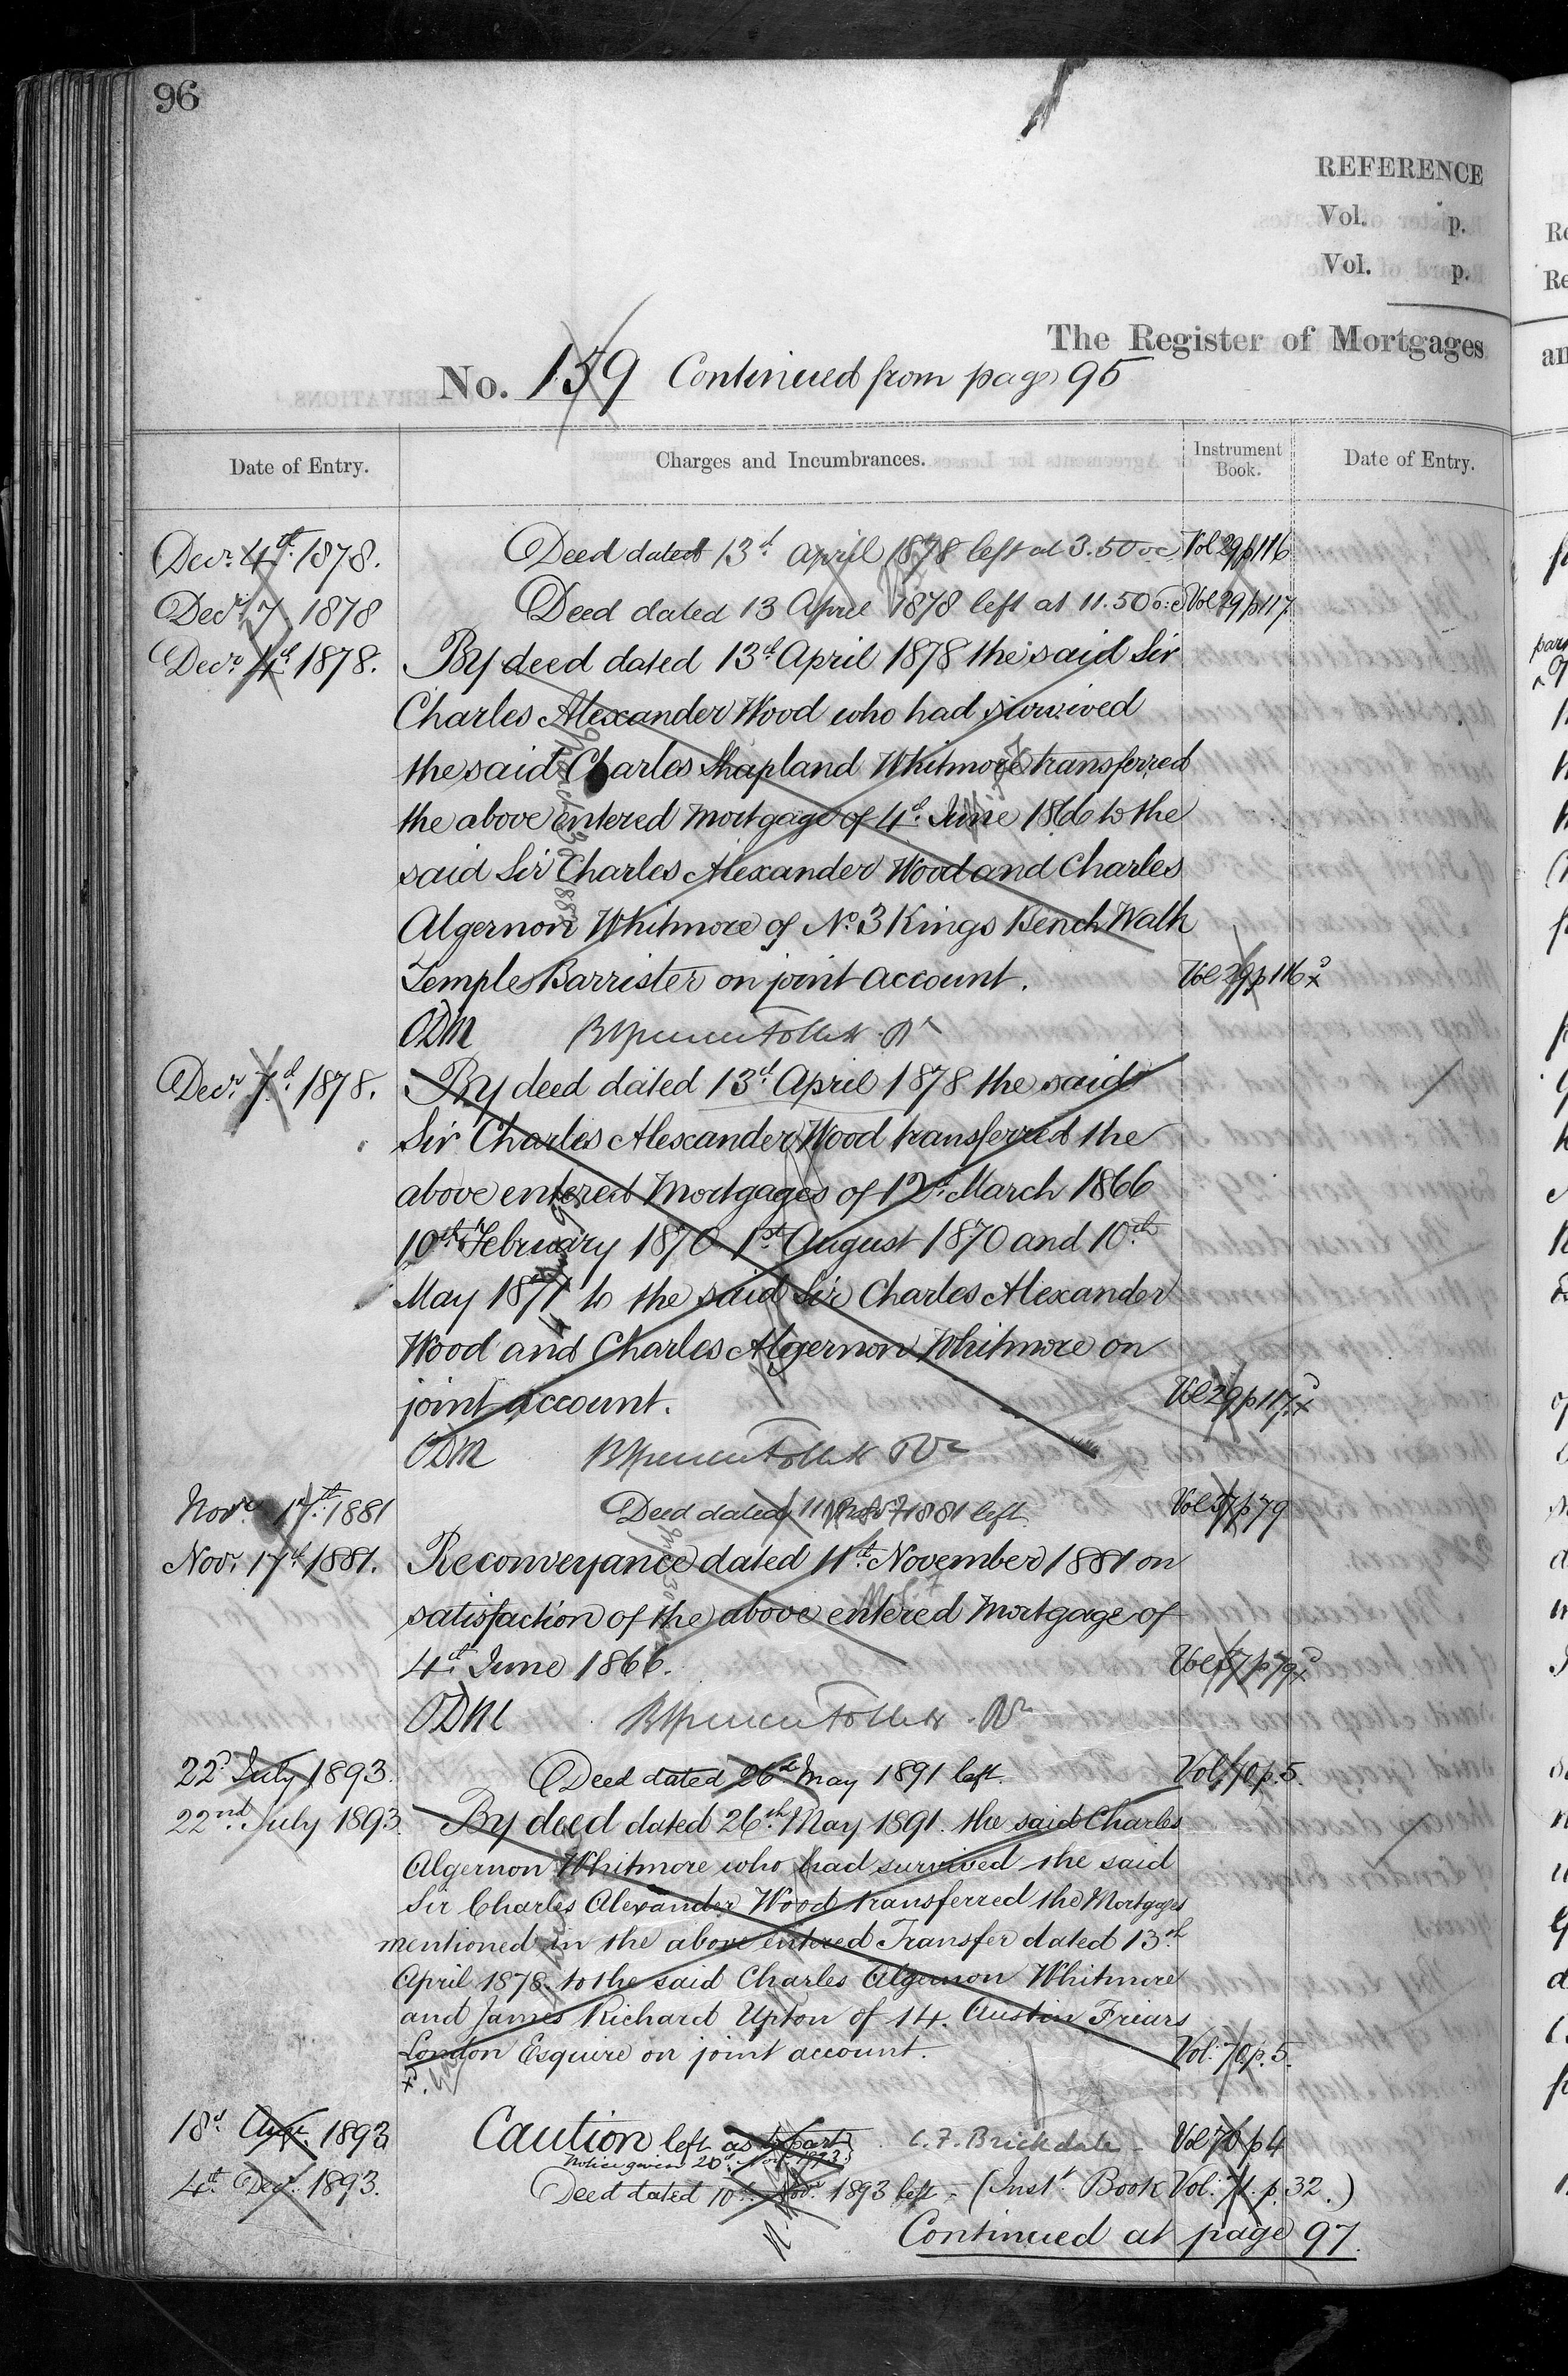 96
REFERENCE
Vol. p.
Vol. p.
The Register of Mortgages
No. 159 Continued from page 95
Date of Entry. Charges and Incumbrances. Instrument Book. Date of Entry.
Decr. 4th. 1878. Deed dated 13th April 1878 left at 3.50 oc Vol 29 p 116
Decr. 7 1878 Deed dated 13 April 1878 left at 11.50 o:c Vol 29 p 117
Decr. 4th. 1878. By deed dated 13th April 1878 the said Sir
Charles Alexander Wood who had survived
the said Charles Shapland Whitmore transferred
the above entered Mortgage of 4th June 1866 to the
said Sir Charles Alexander Wood and Charles
Algernon Whitmore of No. 3 Kings Bench Walk
Temple Barrister on joint account. Vol 29 p 116
ODM
Decr. 7th. 1878. By deed dated 13th April 1878 the said
Sir Charles Alexander Wood transferred the
above entered Mortgages of 12th March 1866
10th February 1870 1st August 1870 and 10th
May 1871 to the said Sir Charles Alexander
Wood and Charles Algernon Whitmore on
joint account. Vol 29 p 117
ODM
Novr. 17th. 1881 Deed dated 11 Novr 1881 left. Vol 37 p 79
Novr. 17th 1881. Reconveyance dated 11th. November 1881 on
satisfaction of the above entered Mortgage of
4th June 1866. Vol 37 p 79
ODM
22d July 1893. Deed dated 26th May 1891 left. Vol. 70 p. 5.
22nd. July 1893. By deed dated 26th. May 1891. the said Charles
Algernon Whitmore who had survived the said
Sir Charles Alexander Wood transferred the Mortgages
mentioned in the above entered Transfer dated 13th
April 1878 to the said Charles Algernon Whitmore
and James Richard Upton of 14. Austin Friars
London Esquire on joint account. Vol. 70. p. 5.
18th Augt. 1893 Caution left as to part C. F. Brickdale Vol 70 p 4
Notice given 20th Novr. 1893.
4th Decr. 1893. Deed dated 10th. Novr. 1893 left - (Inst. Book Vol. 71. p. 32.)
Continued at page 97.